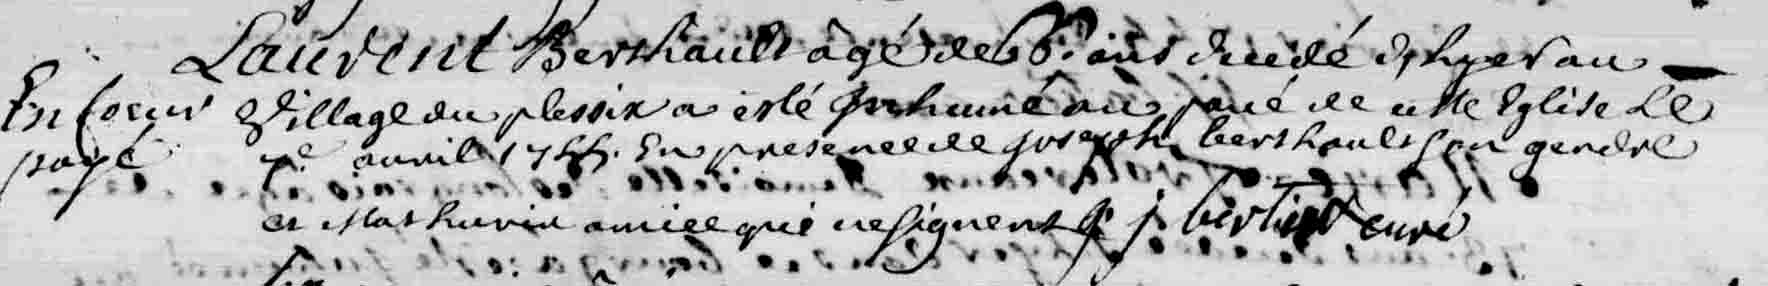 Laurent Berthault âgé de ans decedé d'hyer au
En foeur village du plessix a esté Inhumé au pavé de cette Eglise Le
payé 7e avril 1755. En presence de joseph berthault son gendre
et Mathurin amice qui ne signent j. curé